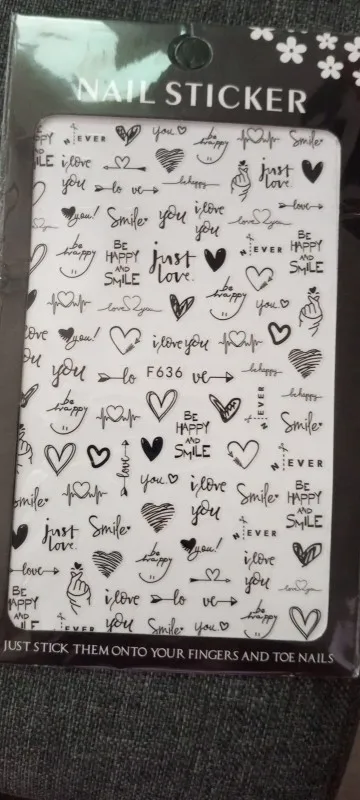 NAIL STICKER
EVER
you
be happy
Smile
PPY
ILE
i love
you
just
love.
lo ve
be happy
love
you!
Smile
you
i love
you
love you
be happy
BE
HAPPY
AND
SMILE
just
love.
N EVER
BE
HAPPY
AND
SMILE
be happy
love you
you
ove
ou
you!
i love you
you
lo
F636
ve
be happy
be happy
BE
HAPPY
AND
SMILE
N EVER
Smile
love
N EVER
you
i love
you
Smile
BE
HAPPY
AND
SMILE
mile
just
love.
Smile
N EVER
be happy
you!
i love
you
love
BE
HAPPY
AND
ILE
i love
you
lo ve
be happy
EVER
Smile
you
JUST STICK THEM ONTO YOUR FINGERS AND TOE NAILS